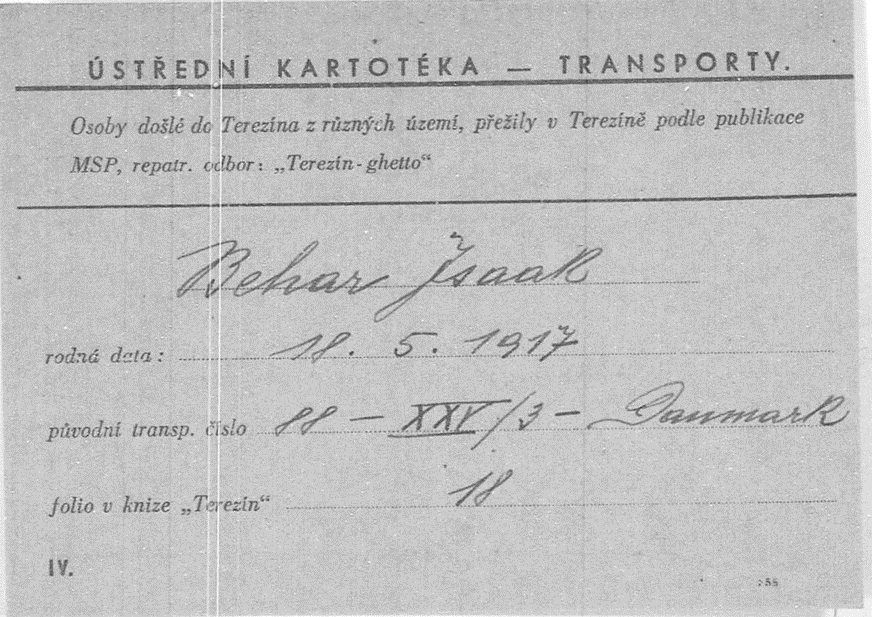 ÚSTŘEDNÍ KARTOTÉKA — TRANSPORTY.
Osoby došlé do Terezína z různých území, přežily v Terezíně podle publikace
MSP, repatr. odbor: „Terezín-ghetto“
Behar Isaak
rodná data: 18. 5. 1917
původní transp. číslo 88 — XXV/3 — Danmark
folio v knize „Terezín“ 18
IV.